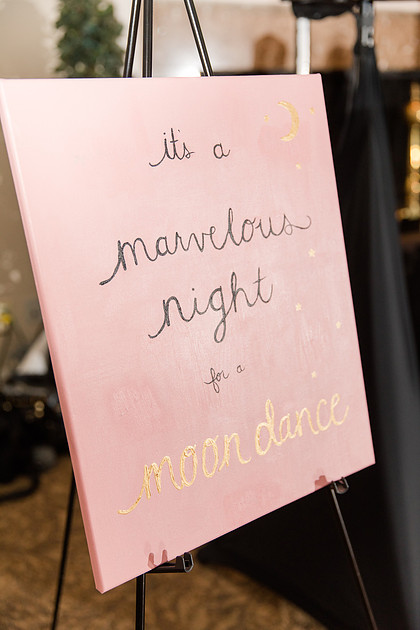 it's a
marvelous
night
for a
moon dance